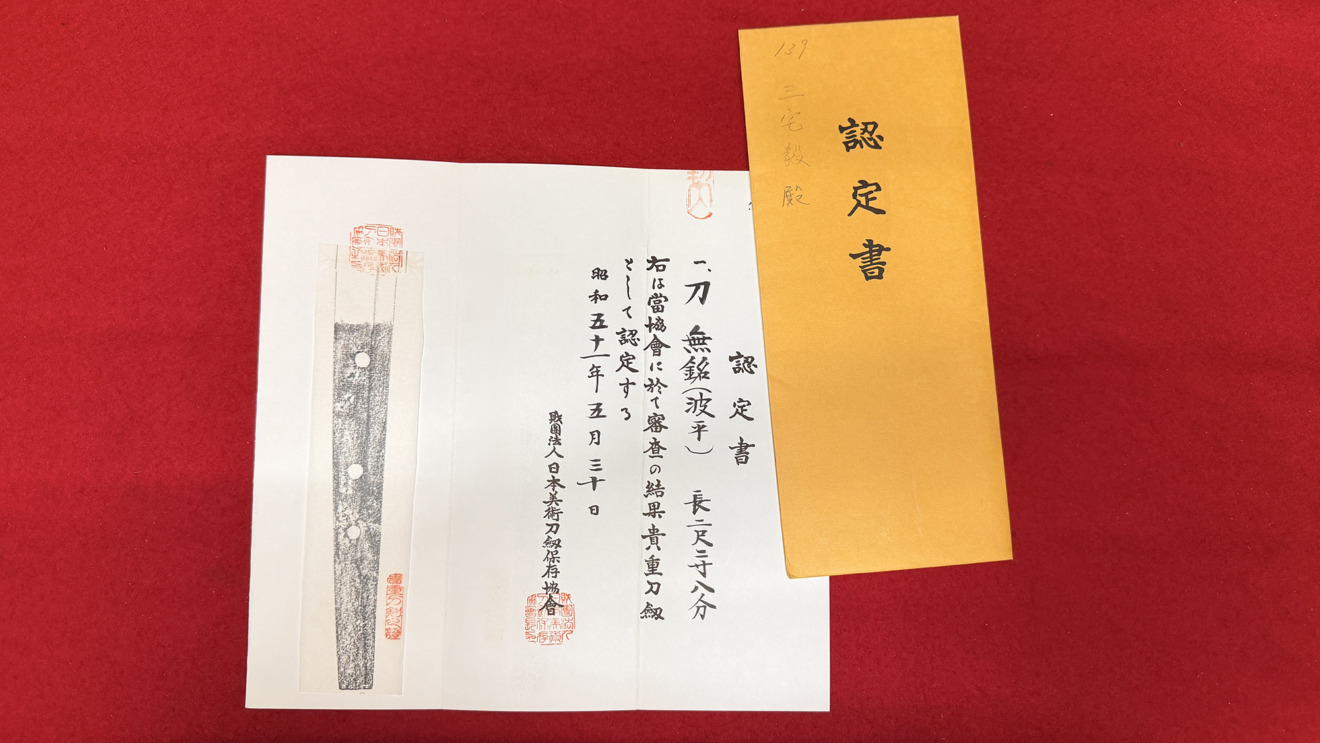 認定書
一、刀 無銘(波平) 長二尺二寸八分
右は當協會に於て審査の結果貴重刀劔
として認定する
昭和五十一年五月三十日
財團法人日本美術刀劔保存協會
認定書
139
三宅毅殿